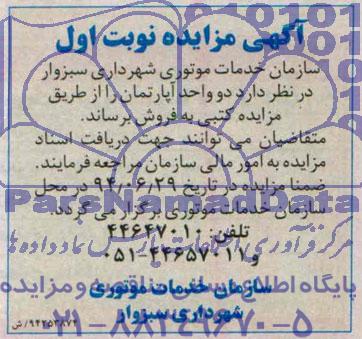 آگهی مزایده نوبت اول
سازمان خدمات موتوری شهرداری سبزوار
در نظر دارد دو واحد آپارتمان را از طریق
مزایده کتبی به فروش برساند.
متقاضیان می توانند جهت دریافت اسناد
مزایده به امور مالی سازمان مراجعه فرمایند.
ضمنا مزایده در تاریخ ۹۴/۰۶/۲۹ در محل
سازمان خدمات موتوری برگزار می گردد.
تلفن: ۴۴۶۴۷۰۱۰
و ۴۴۶۵۷۰۱۱-۰۵۱
سازمان خدمات موتوری
شهرداری سبزوار
۹۴۲۵۳۸۷۴/ش
ParsNamadData
پایگاه اطلاع رسانی مناقصه و مزایده
۰۲۱-۸۸۳۴۹۶۷۰-۵